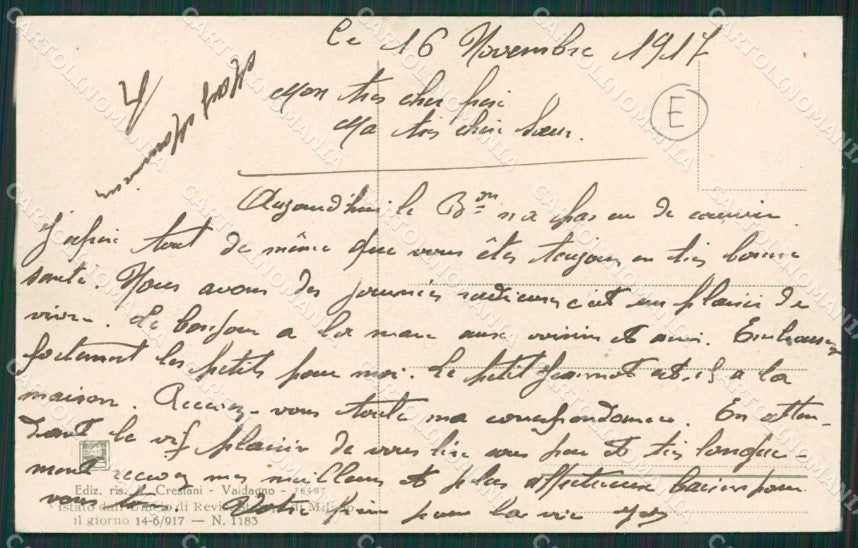 Le 16 Novembre 1917
Mon très cher frère
Ma très chère Sœur.
E
Aujourd'hui le Bon n'a pas eu de courrier
J'espère tout de même que vous êtes toujours en très bonne
santé. Nous avons des journées radieuses c'est un plaisir de
vivre. Le bonjour a la maman aux voisins et amis. Embrassez
fortement les petits pour moi. Le petit est-il a la
maison. Recevez-vous toute ma correspondance. En atten-
dant le vif plaisir de vous lire sous peu et très longue-
ment recevez mes meilleurs et plus affectueux baisers pour
vous Votre frère pour la vie
Ediz. ris. Crestani - Valdagno - 763/87
Istato dall'Ufficio di Revisione di Milano
il giorno 14-6/917 — N. 1183
CARTOLINOMANIA